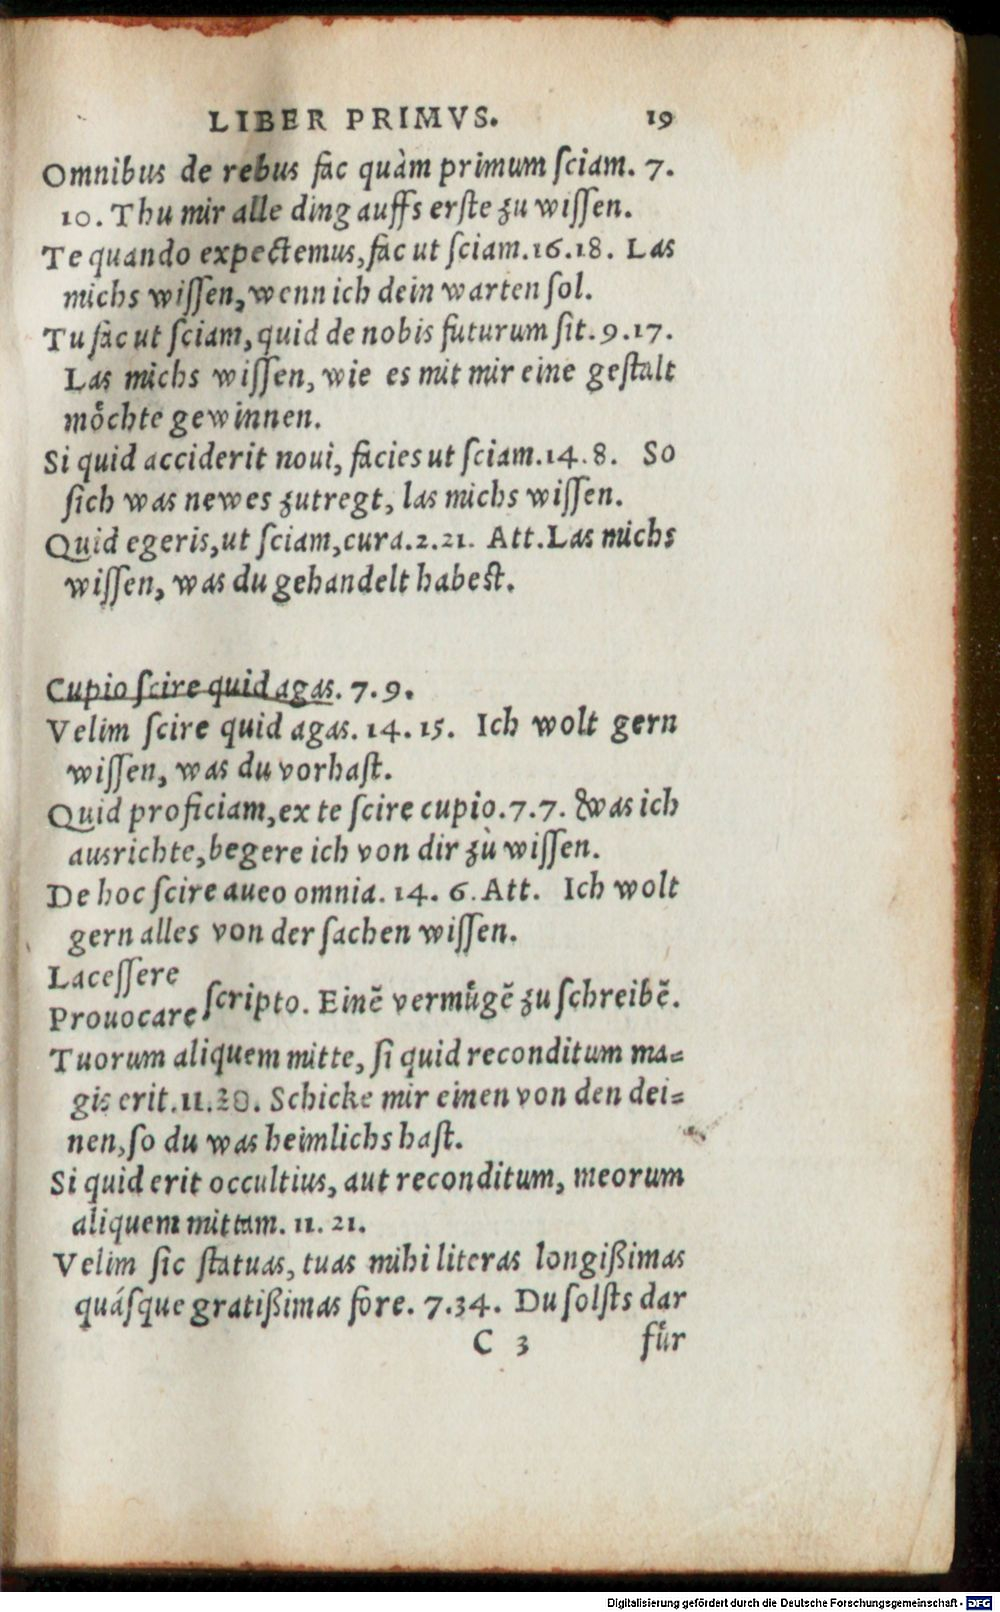 LIBER PRIMVS. 19
Omnibus de rebus fac quàm primum ſciam. 7.
10. Thu mir alle ding auffs erſte zu wiſſen.
Te quando expectemus, fac ut ſciam. 16. 18. Las
michs wiſſen, wenn ich dein warten ſol.
Tu fac ut ſciam, quid de nobis futurum ſit. 9. 17.
Las michs wiſſen, wie es mit mir eine geſtalt
moͤchte gewinnen.
Si quid acciderit noui, facies ut ſciam. 14. 8. So
ſich was newes zutregt, las michs wiſſen.
Quid egeris, ut ſciam, cura. 2. 21. Att. Las michs
wiſſen, was du gehandelt habeſt.
Cupio ſcire quid agas. 7. 9.
Velim ſcire quid agas. 14. 15. Ich wolt gern
wiſſen, was du vorhaſt.
Quid proficiam, ex te ſcire cupio. 7. 7. Was ich
ausrichte, begere ich von dir zù wiſſen.
De hoc ſcire aueo omnia. 14. 6. Att. Ich wolt
gern alles von der ſachen wiſſen.
Laceſſere
Prouocare ſcripto. Einẽ vermuͤgẽ zu ſchreibẽ.
Tuorum aliquem mitte, ſi quid reconditum ma=
gis erit. 11. 20. Schicke mir einen von den dei=
nen, ſo du was heimlichs haſt.
Si quid erit occultius, aut reconditum, meorum
aliquem mittam. 11. 21.
Velim ſic ſtatuas, tuas mihi literas longißimas
quáſque gratißimas fore. 7. 34. Du ſolſts dar
C 3 fuͤr
Digitalisierung gefördert durch die Deutsche Forschungsgemeinschaft - DFG